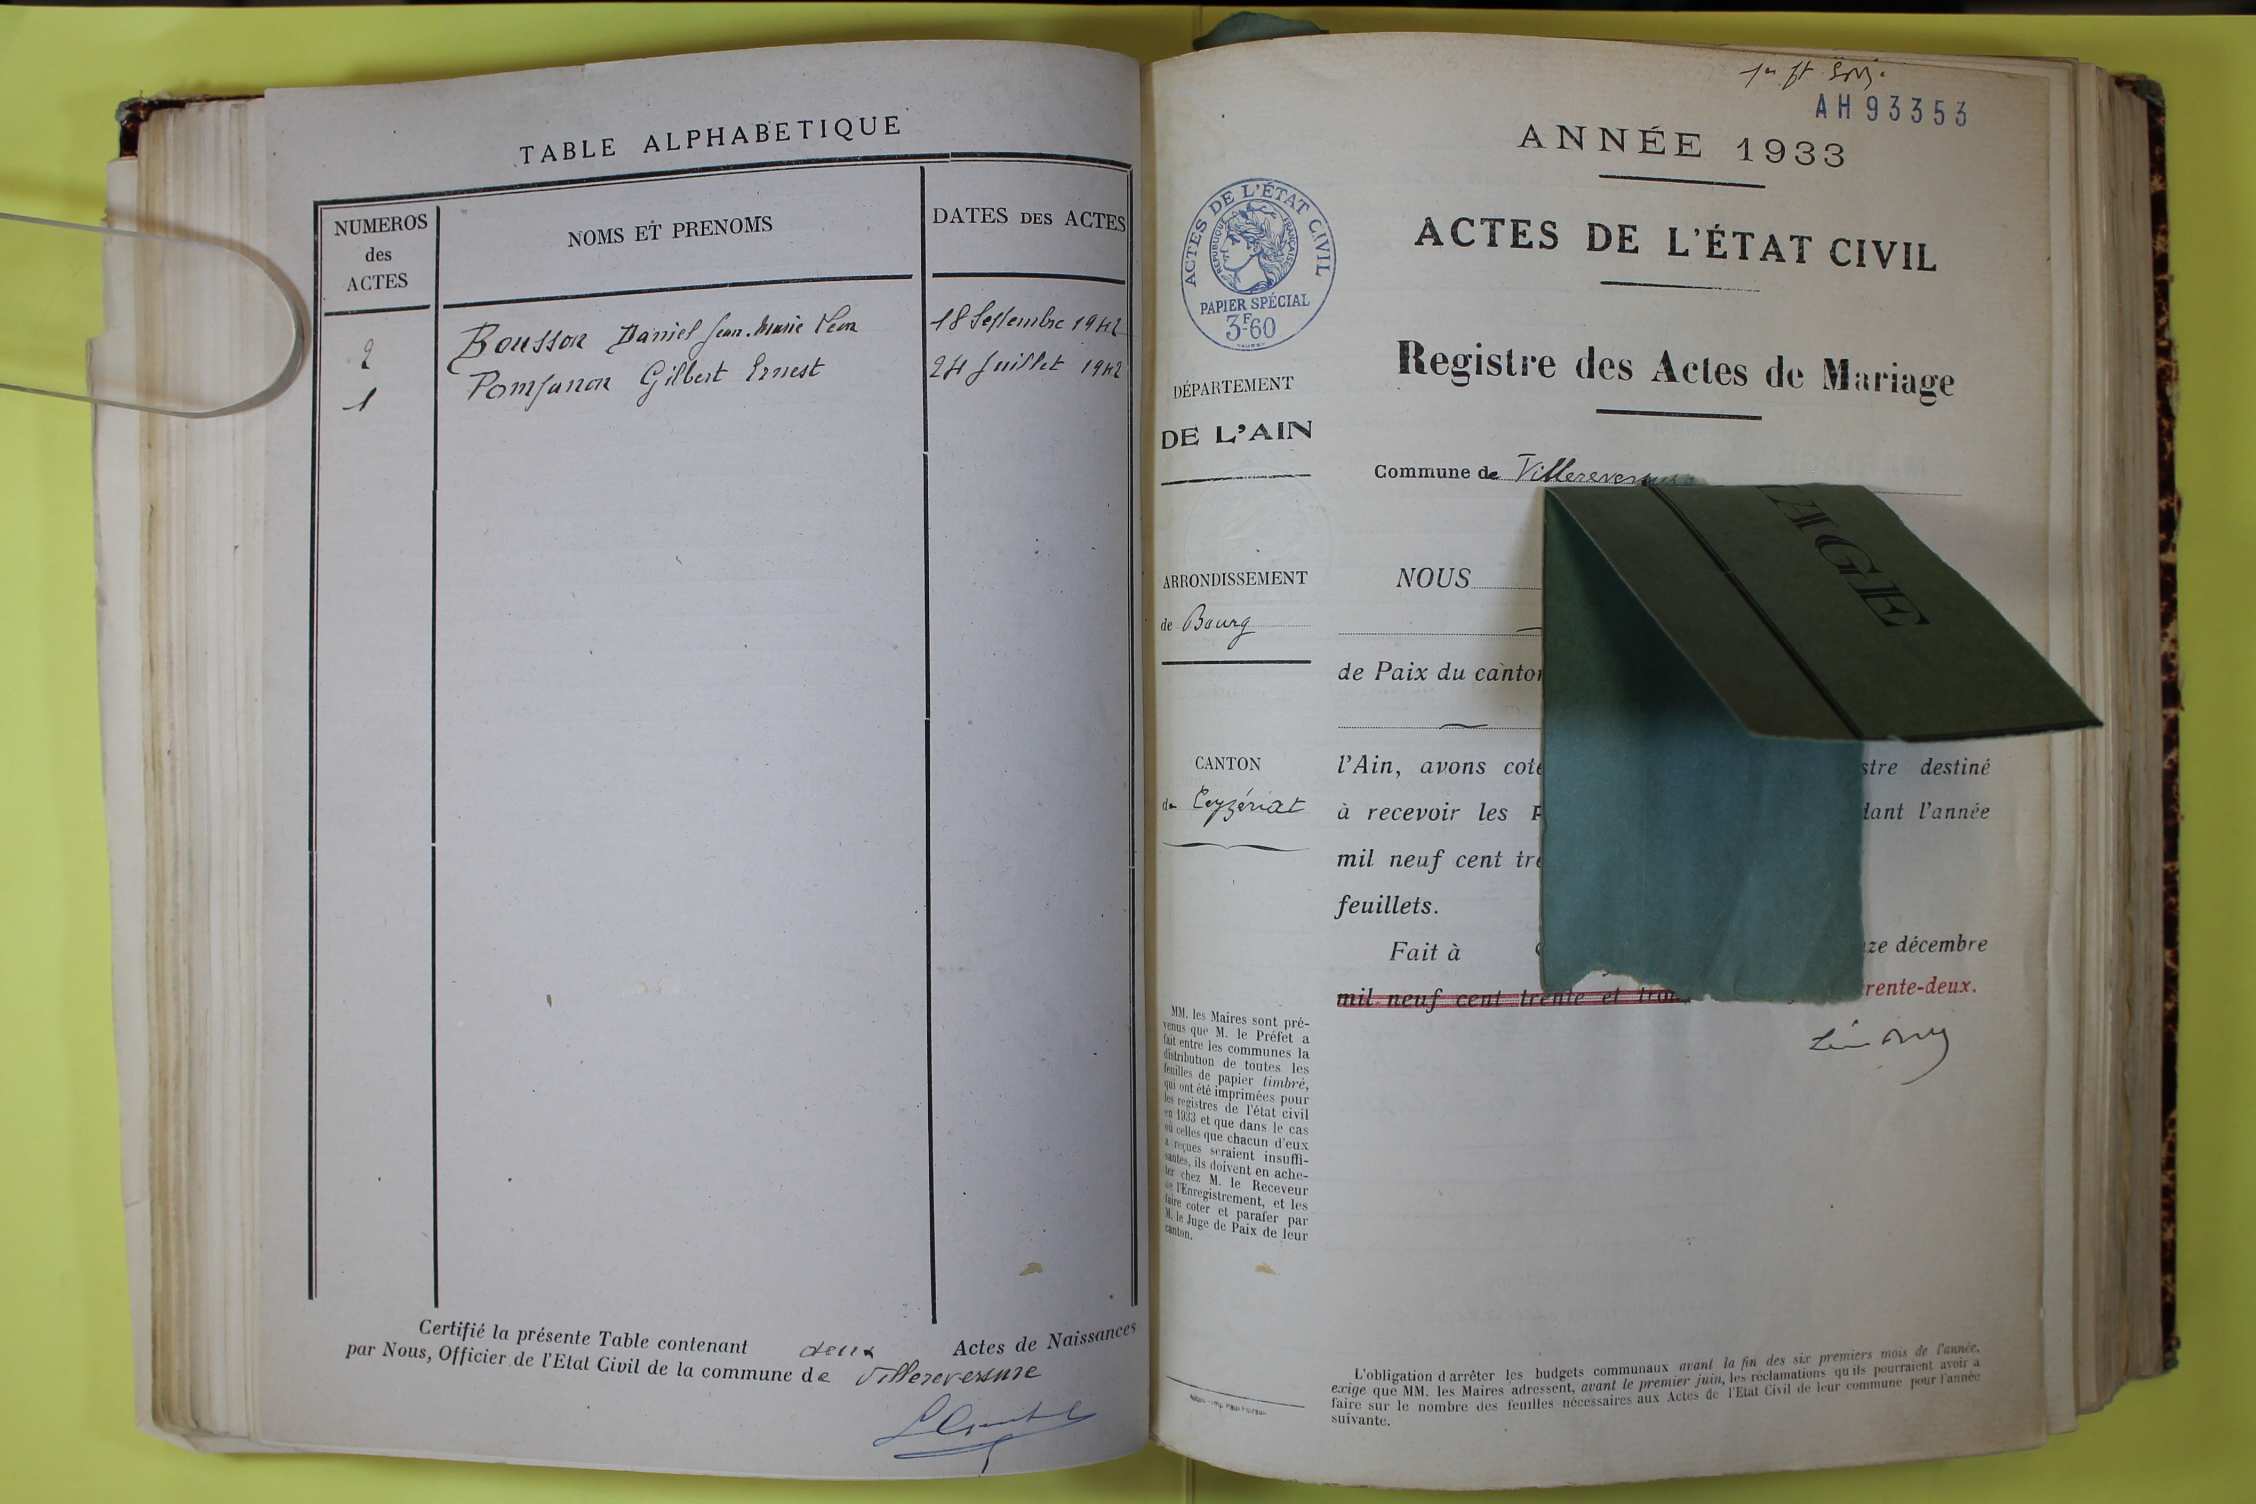 TABLE ALPHABETIQUE
NUMEROS
des
ACTES
NOMS ET PRENOMS
DATES DES ACTES
2 Bousson Daniel Jean-Marie Léon 18 Septembre 1942
1 Pomfunon Gilbert Ernest 24 Juillet 1942
Certifié la présente Table contenant deux Actes de Naissances
par Nous, Officier de l'Etat Civil de la commune de Villereversure
AH93353
ANNÉE 1933
ACTES DE L'ÉTAT CIVIL
RÉPUBLIQUE FRANÇAISE
PAPIER SPÉCIAL
3F60
ACTES DE L'ÉTAT CIVIL
Registre des Actes de Mariage
DÉPARTEMENT
DE L'AIN
Commune de Villereversure
AGE
ARRONDISSEMENT
de Bourg
NOUS
de Paix du canton
CANTON
de Ceyzériat
l'Ain, avons coté stre destiné
à recevoir les dant l'année
mil neuf cent tre
feuillets.
Fait à ze décembre
mil neuf cent trente et trois rente-deux.
MM. les Maires sont pré-
venus que M. le Préfet a
fait entre les communes la
distribution de toutes les
feuilles de papier timbré,
qui ont été imprimées pour
les registres de l'état civil
en 1933 et que dans le cas
où celles que chacun d'eux
a reçues seraient insuffi-
santes, ils doivent en ache-
ter chez M. le Receveur
de l'Enregistrement, et les
faire coter et parafer par
M. le Juge de Paix de leur
canton.
L'obligation d'arrêter les budgets communaux avant la fin des six premiers mois de l'année,
exige que MM. les Maires adressent, avant le premier juin, les réclamations qu'ils pourraient avoir à
faire sur le nombre des feuilles nécessaires aux Actes de l'Etat Civil de leur commune pour l'année
suivante.